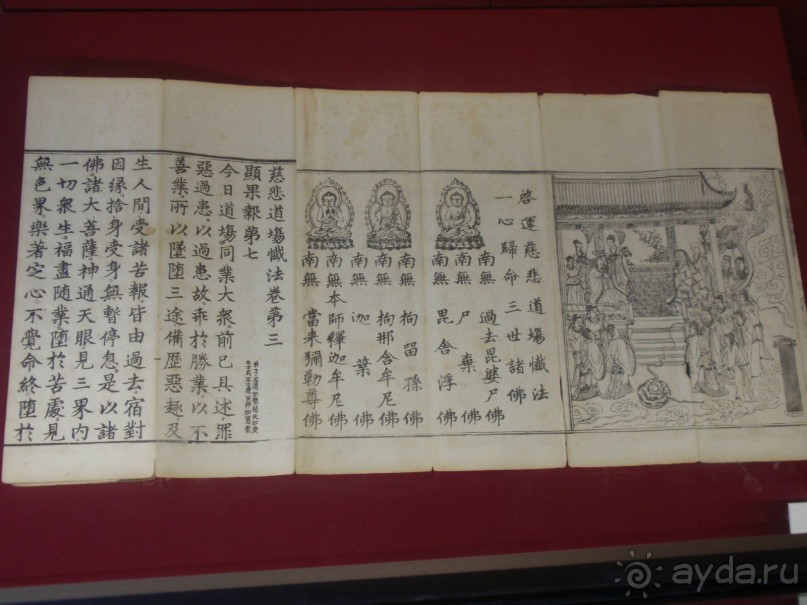 啓運慈悲道塲懺法
一心歸命三世諸佛
南無過去毘婆尸佛
南無尸棄佛
南無毘舍浮佛
南無拘留孫佛
南無拘那含牟尼佛
南無迦葉佛
南無本師釋迦牟尼佛
南無當来彌勒尊佛
慈悲道塲懺法卷第三
顯果報第七
今日道塲同業大衆前已具述罪
惡過患以過患故乖於勝業以不
善業所以墜墮三途備歷惡趣及
生人間受諸苦報皆由過去宿對
因緣捨身受身無暫停息是以諸
佛諸大菩薩神通天眼見三界内
一切衆生福盡随業墮於苦處見
無色界樂著定心不覺命終墮於
ayda.ru